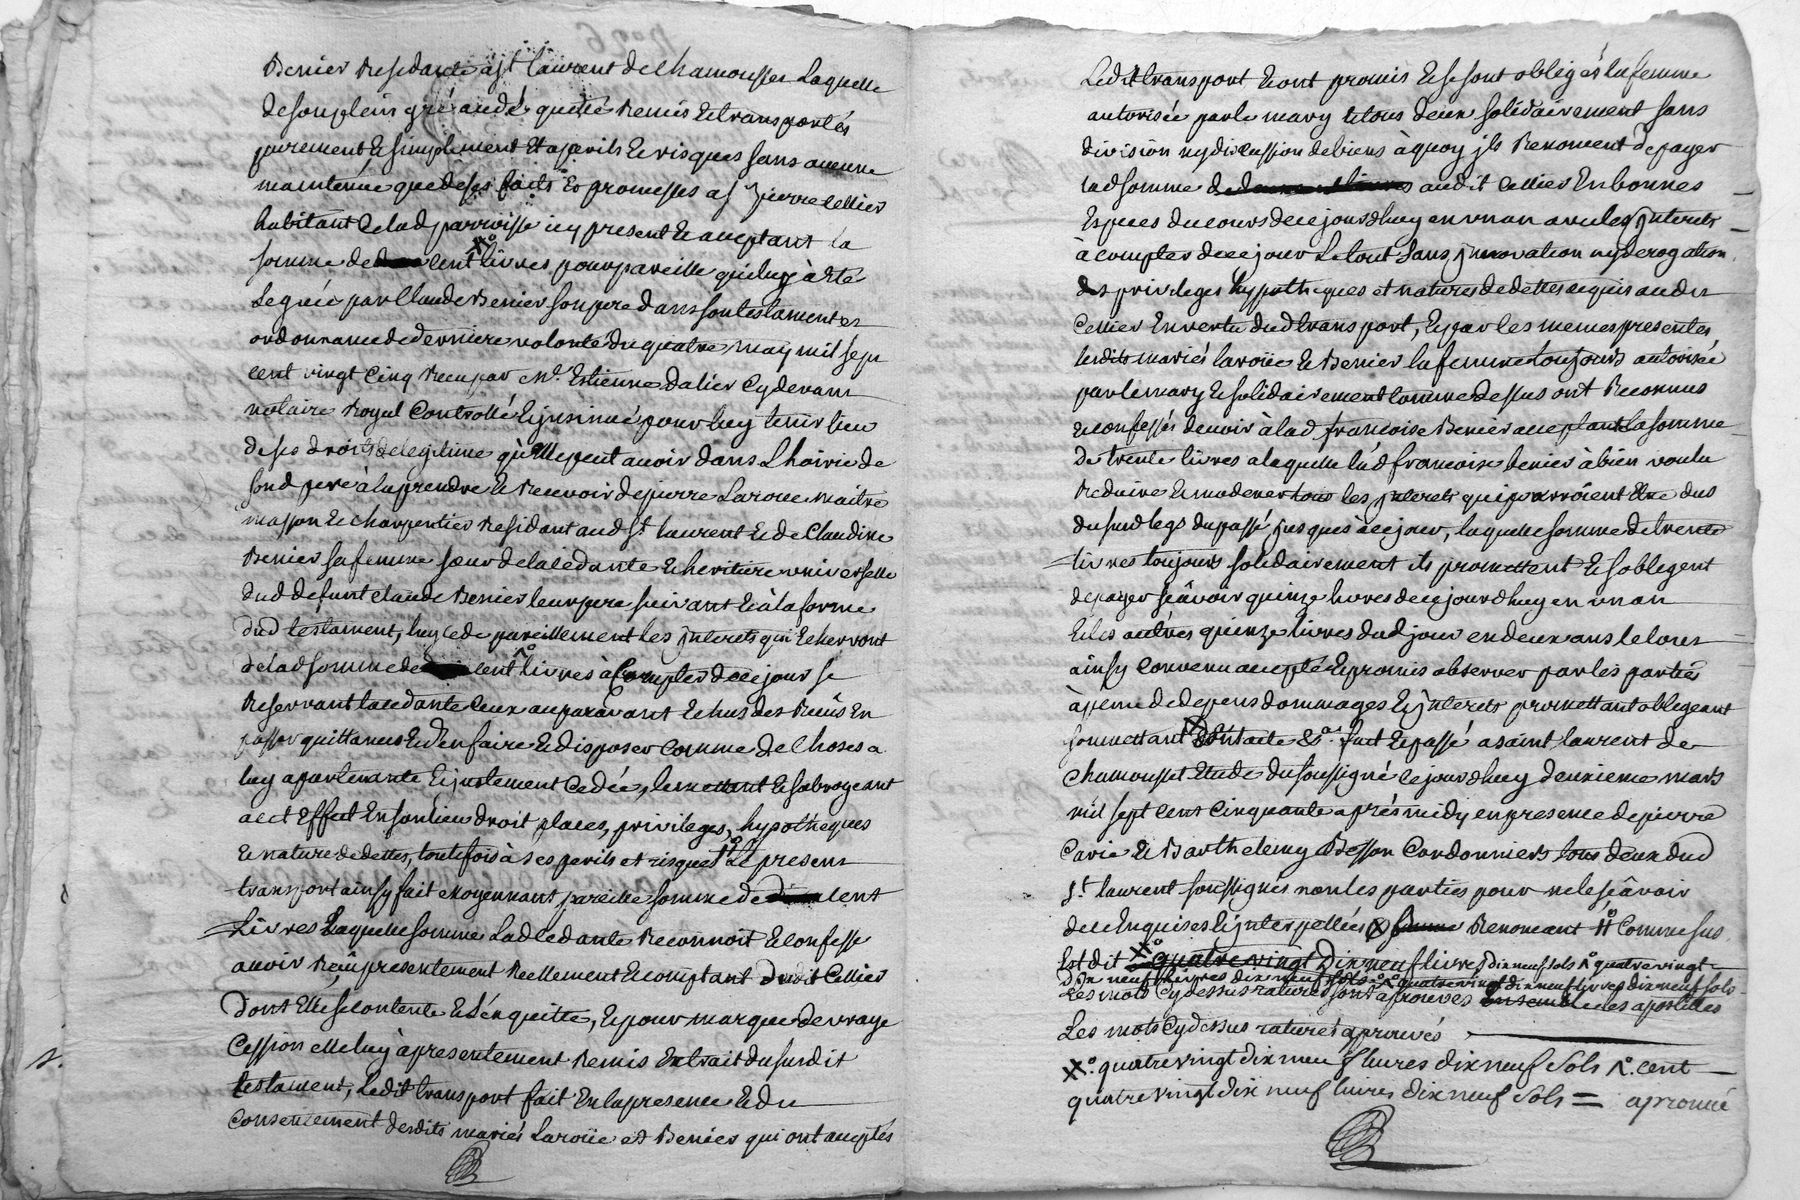 Benier Residante a st laurent de Chamousset Laquelle
de son plein gré a cedé quitté Remis et transportés
purement et simplement et a perils et risques sans aucune
maintenüe que de ses faits et promesses a sr pierre Cellier
habitant de lad parroisse icy present et acceptant la
somme de cent livres pour pareille qui luy à Eté
Leguée par Claude Benier son pere dans son testament et
ordonnance de derniere volonté du quatre may mil sept
cent vingt Cinq Receu par me Estienne Dalier Cydevant
notaire Royal Controllé et jnsinué pour luy tenir lieu
de ses droits de legitime qu'Elle peut avoir dans L hoirie de
sond pere à la prendre et Recevoir de pierre Laroue maitre
masson et charpentier Residant aud st laurent et de Claudine
Benier sa femme sœur de la cédante et heritiere universelle
dud defunt claude Benier leur pere suivant et à la forme
dud testament, luy cede pareillement les jnterets qui Echerront
de lad somme de cent livres à Compter de ce jour se
Reservant la cedante Ceux auparavant Echus des Reçûs En
passer quittances et d'En faire et disposer Comme de Choses a
luy apartenante Et justement Cedée, le mettant et subrogeant
a cet Effect En son lieu droit, places, privileges, hypotheques
et nature de dettes, toutefois à ses perils et risques Le present
transport ainsy fait moyennant pareille somme de cent
Livres Laquelle somme Lad Cedante Reconnoit Et confesse
avoir Reçû presentement Reellement Et comptant dudit Cellier
Dont Elle se contente et L'en quitte, et pour marque de vraye
Cession elle luy à presentement Remis Extrait du susdit
testament, Ledit transport fait En la presence et du
consentement desdits mariés Laroüe et Benier qui ont acceptés
Ledit transport Et ont promis et se sont obligés la femme
autorisée par le mary et tous deux solidairement sans
division ny discussion de biens à quoy jls Renoncent de payer
lad somme audit Cellier En bonnes
Especes du cours de ce jourdhuy en un an avec les jnterets
à compter de ce jour Le tout sans jnnovation ny derogation
des privileges hyppotheques et natures de dettes acquis aud sr
Cellier En vertu dud transport, Et par les memes presentes
lesdits mariés laroüe et Benier la femme toujours autorisée
par le mary et solidairement comme dessus ont Reconnus
et confessés devoir à lad francoise Benier acceptant la somme
de trente livres a laquelle lad francoise benier à bien voulu
Reduire et moderer tous les jnterets qui pourroient Etre dus
du susd legs du passé jusques à ce jour, laquelle somme de trente
livres toujours solidairement ils promettent et s oblegent
de payer sçâvoir quinze livres de ce jourdhuy en un an
Et les autres quinze livres dud jour en deux ans le tout
ainsy convenu accepté et promis observer par les parties
à peine de depens dommages et jnterets promettant oblegeant
soumettant fait et passé a saint laurent de
chamousset Etude du soussigné ce jourdhuy deuxieme mars
mil sept cent Cinquante aprés midy en presence de pierre
Carie et Barthelemy Besson Cordonniers tous deux dud
st laurent soussignés non les parties pour ne le sçâvoir
de ce Enquises Et jnterpellées Renonceant Comme sus
Est dit quatre vingt Dix neuf livres dix neuf sols quatre vingt
dix neuf livres dix neuf sols quatre vingt dix neuf livres dix neuf sols
Les mots Cydessus raturés sont aprouvés Ensemble les apostilles
Les mots Cydessus raturés aprouvés
quatre vingt dix neuf livres dix neuf sols cent
quatre vingt dix neuf livres dix neuf sols = aprouvé